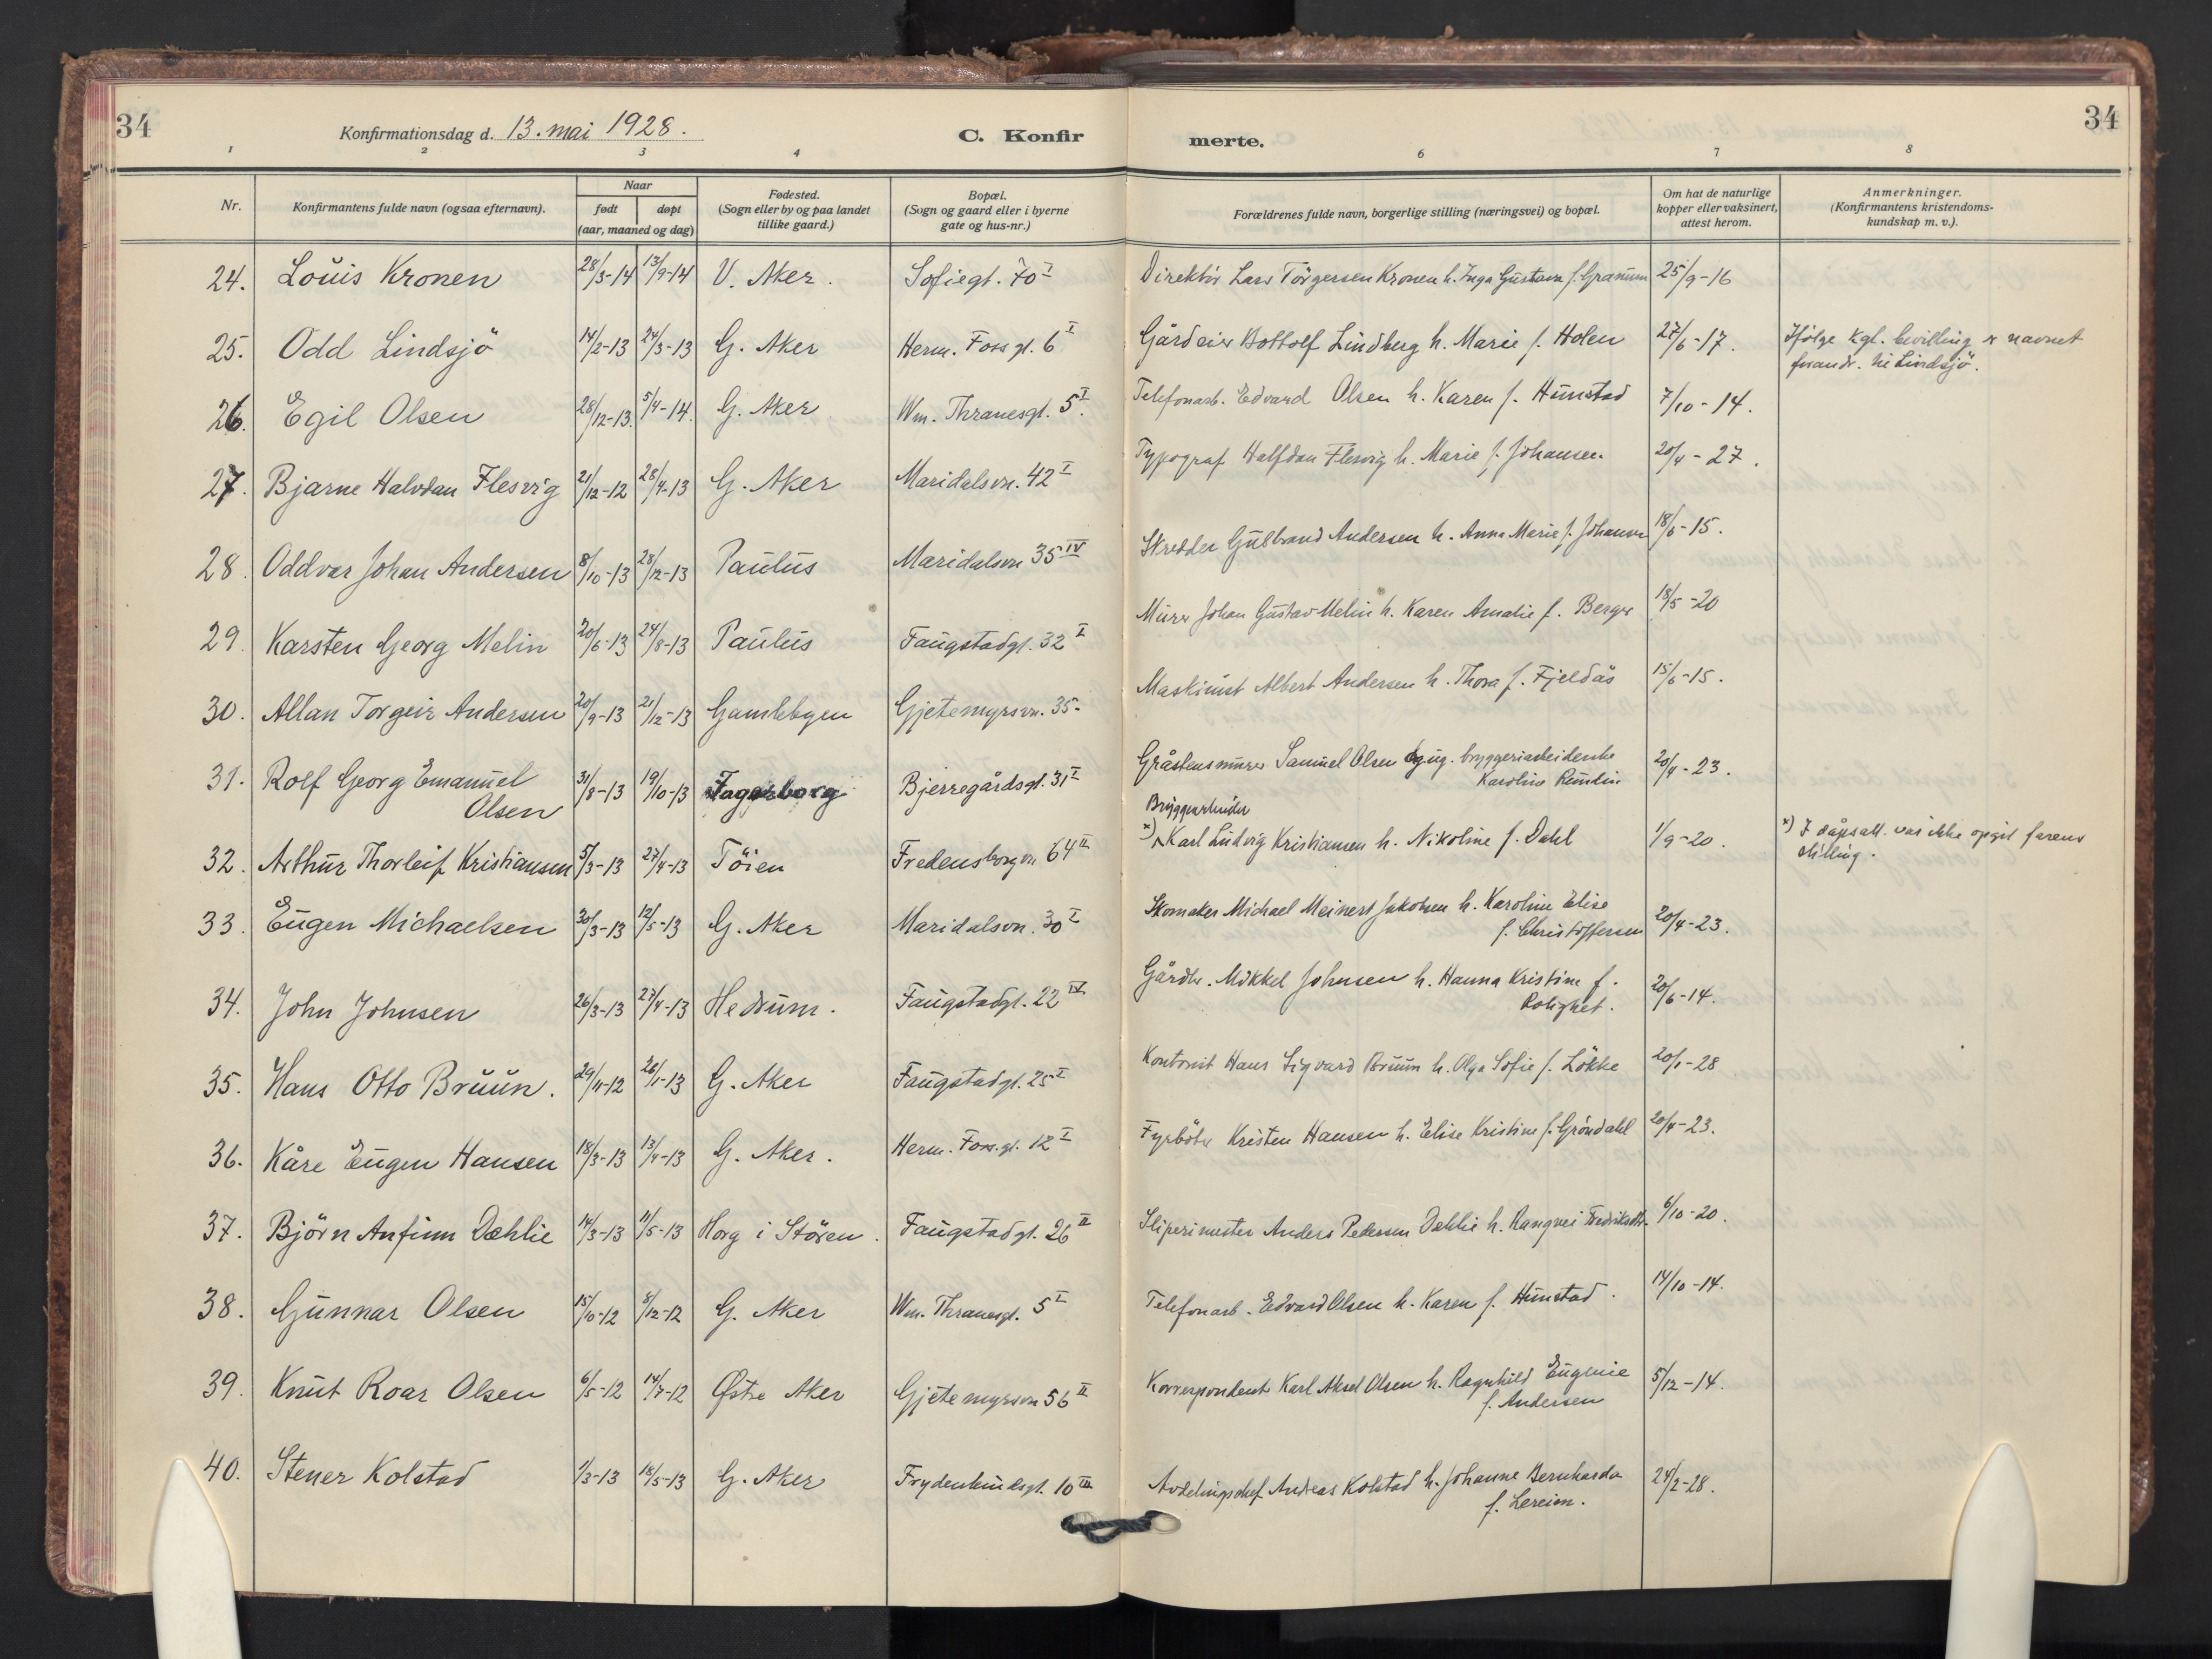 34
Konfirmationsdag d. 13. mai 1928.
C. Konfir
merte.
34
1 2 3 4 6 7 8
Nr.
Konfirmantens fulde navn (ogsaa efternavn).
Naar
født døpt
(aar, maaned og dag)
Fødested.
(Sogn eller by og paa landet
tillike gaard.)
Bopæl.
(Sogn og gaard eller i byerne
gate og hus-nr.)
Forældrenes fulde navn, borgerlige stilling (næringsvei) og bopæl.
Om hat de naturlige
kopper eller vaksinert,
attest herom.
Anmerkninger.
(Konfirmantens kristendoms-
kundskap m. v.).
24. Louis Kronen 28/3-14 13/9-14 V. Aker. Sofiegt. 70 I Direktör Lars Törgersen Kronen h. Inga Gustava f. Granum 25/9-16
25. Odd Lindsjö 14/2-13 24/3-13 G. Aker Herm. Foss gt. 6 I Gårdeier Bottolf Lindberg h. Marie f. Holen 27/6-17. Ifölge kgl. bevilling er navnet
forandr. til Lindsjö.
26. Egil Olsen 28/12-13. 5/4-14. G. Aker Wm. Thranesgt. 5 I. Telefonarb. Edvard Olsen h. Karen f. Hunstad 7/10-14.
27. Bjarne Halvdan Flesvig 21/12-12 28/4-13 G. Aker Maridalsvn. 42 I Typograf Halfdan Flesvig h. Marie f. Johansen 20/4-27.
28. Oddvar Johan Andersen 8/10-13 28/12-13 Paulus Maridalsvn 35 IV Skredder Gulbrand Andersen h. Anna Marie f. Johansen 18/5-15.
29. Karsten Georg Melin 20/6-13 24/8-13 Paulus Faugstadgt. 32 I Murer Johan Gustav Melin h. Karen Amalie f. Berger 18/5-20
30. Allan Torgeir Andersen 20/9-13 21/12-13 Gamlebyen Gjetemyrsvn. 35. Maskinist Albert Andersen h. Thora f. Fjeldås 15/6-15.
31. Rolf Georg Emanuel
Olsen 31/8-13 19/10-13 Fagerborg Bjerregårdsgt. 31 I Gråstensmurer Samuel Olsen og ug. bryggeriarbeiderske
Karoline Rundin 20/4-23.
Bryggearbeider
32. Arthur Thorleif Kristiansen 5/3-13 27/4-13 Töien Fredensborgvn 64 II x) Karl Ludvig Kristiansen h. Nikoline f. Dahl 1/9-20. x) I dåpsatt. var ikke opgit farens
stilling.
33. Eugen Michaelsen 30/3-13 12/5-13 G. Aker Maridalsvn. 30 I Skomaker Michael Meinert Jakobsen h. Karoline Elise
f. Christoffersen 20/4-23.
34. John Johnsen 26/3-13 27/4-13 Hedrum. Faugstadgt. 22 IV Gårdbr. Mikkel Johnsen h. Hanna Kristine f.
Rolighet. 20/6-14.
35. Hans Otto Bruun. 29/11-12 26/1-13 G. Aker Faugstadgt. 25 I Kontorist Hans Sigvard Bruun h. Olga Sofie f. Lökke 20/1-28
36. Kåre Eugen Hansen 18/3-13 13/4-13 G. Aker. Herm. Foss. gt. 12 I Fyrböter Kristen Hansen h. Elise Kristine f. Gröndahl 20/4-23.
37. Björn Anfinn Dæhlie 14/3-13 11/5-13 Horg i Stören. Faugstadgt. 26 II Sliperimester Anders Pedersen Dæhlie h. Rangvei Fredriksdtr. 6/10-20.
38. Gunnar Olsen 15/10-12 8/12-12 G. Aker Wm. Thranesgt. 5 I Telefonarb. Edvard Olsen h. Karen f. Hunstad. 14/10-14.
39. Knut Roar Olsen 6/5-12 14/7-12 Østre Aker Gjetemyrsvn 56 II Korrespondent Karl Aksel Olsen h. Ragnhild Eugenie
f. Andersen 5/12-14.
40. Stener Kolstad 1/3-13 18/5-13 G. Aker Frydenlundsgt. 10 III Avdelingschef Andreas Kolstad h. Johanne Bernharda
f. Lereim. 24/2-28.